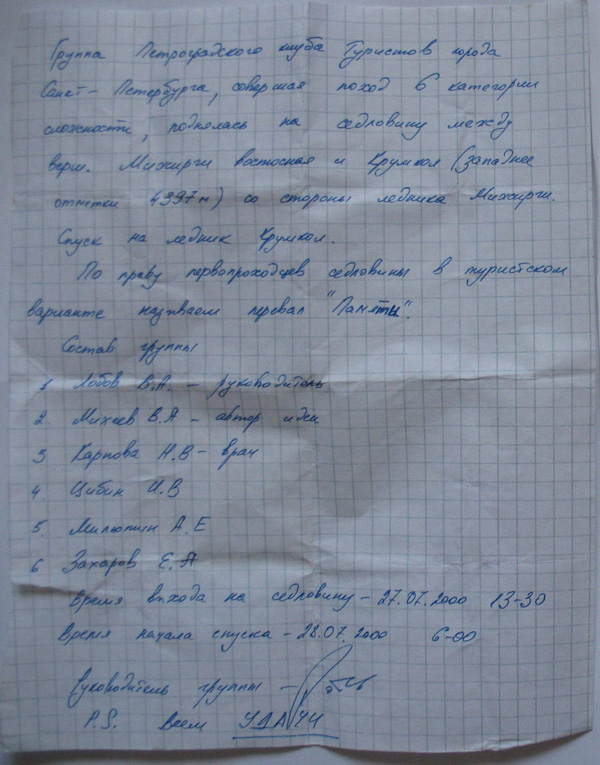 Группа Петроградского клуба Туристов города
Санкт-Петербурга, совершая поход 6 категории
сложности, поднялась на седловину между
верш. Мижирги восточная и Крумкол (западнее
отметки 4397м) со стороны ледника Мижирги.
Спуск на ледник Крумкол.
По праву первопроходцев седловины в туристском
варианте называем перевал "Памяти".
Состав группы
1 Лобов В.А. - руководитель
2. Михеев В.А - автор идеи
3 Карпова Н.В - врач
4. Цибин И.В
5. Милютин А.Е
6 Захаров Е.А
Время выхода на седловину - 27.07.2000 13-30
Время начала спуска - 28.07.2000 6-00
Руководитель группы -
P.S. Всем УДАЧИ